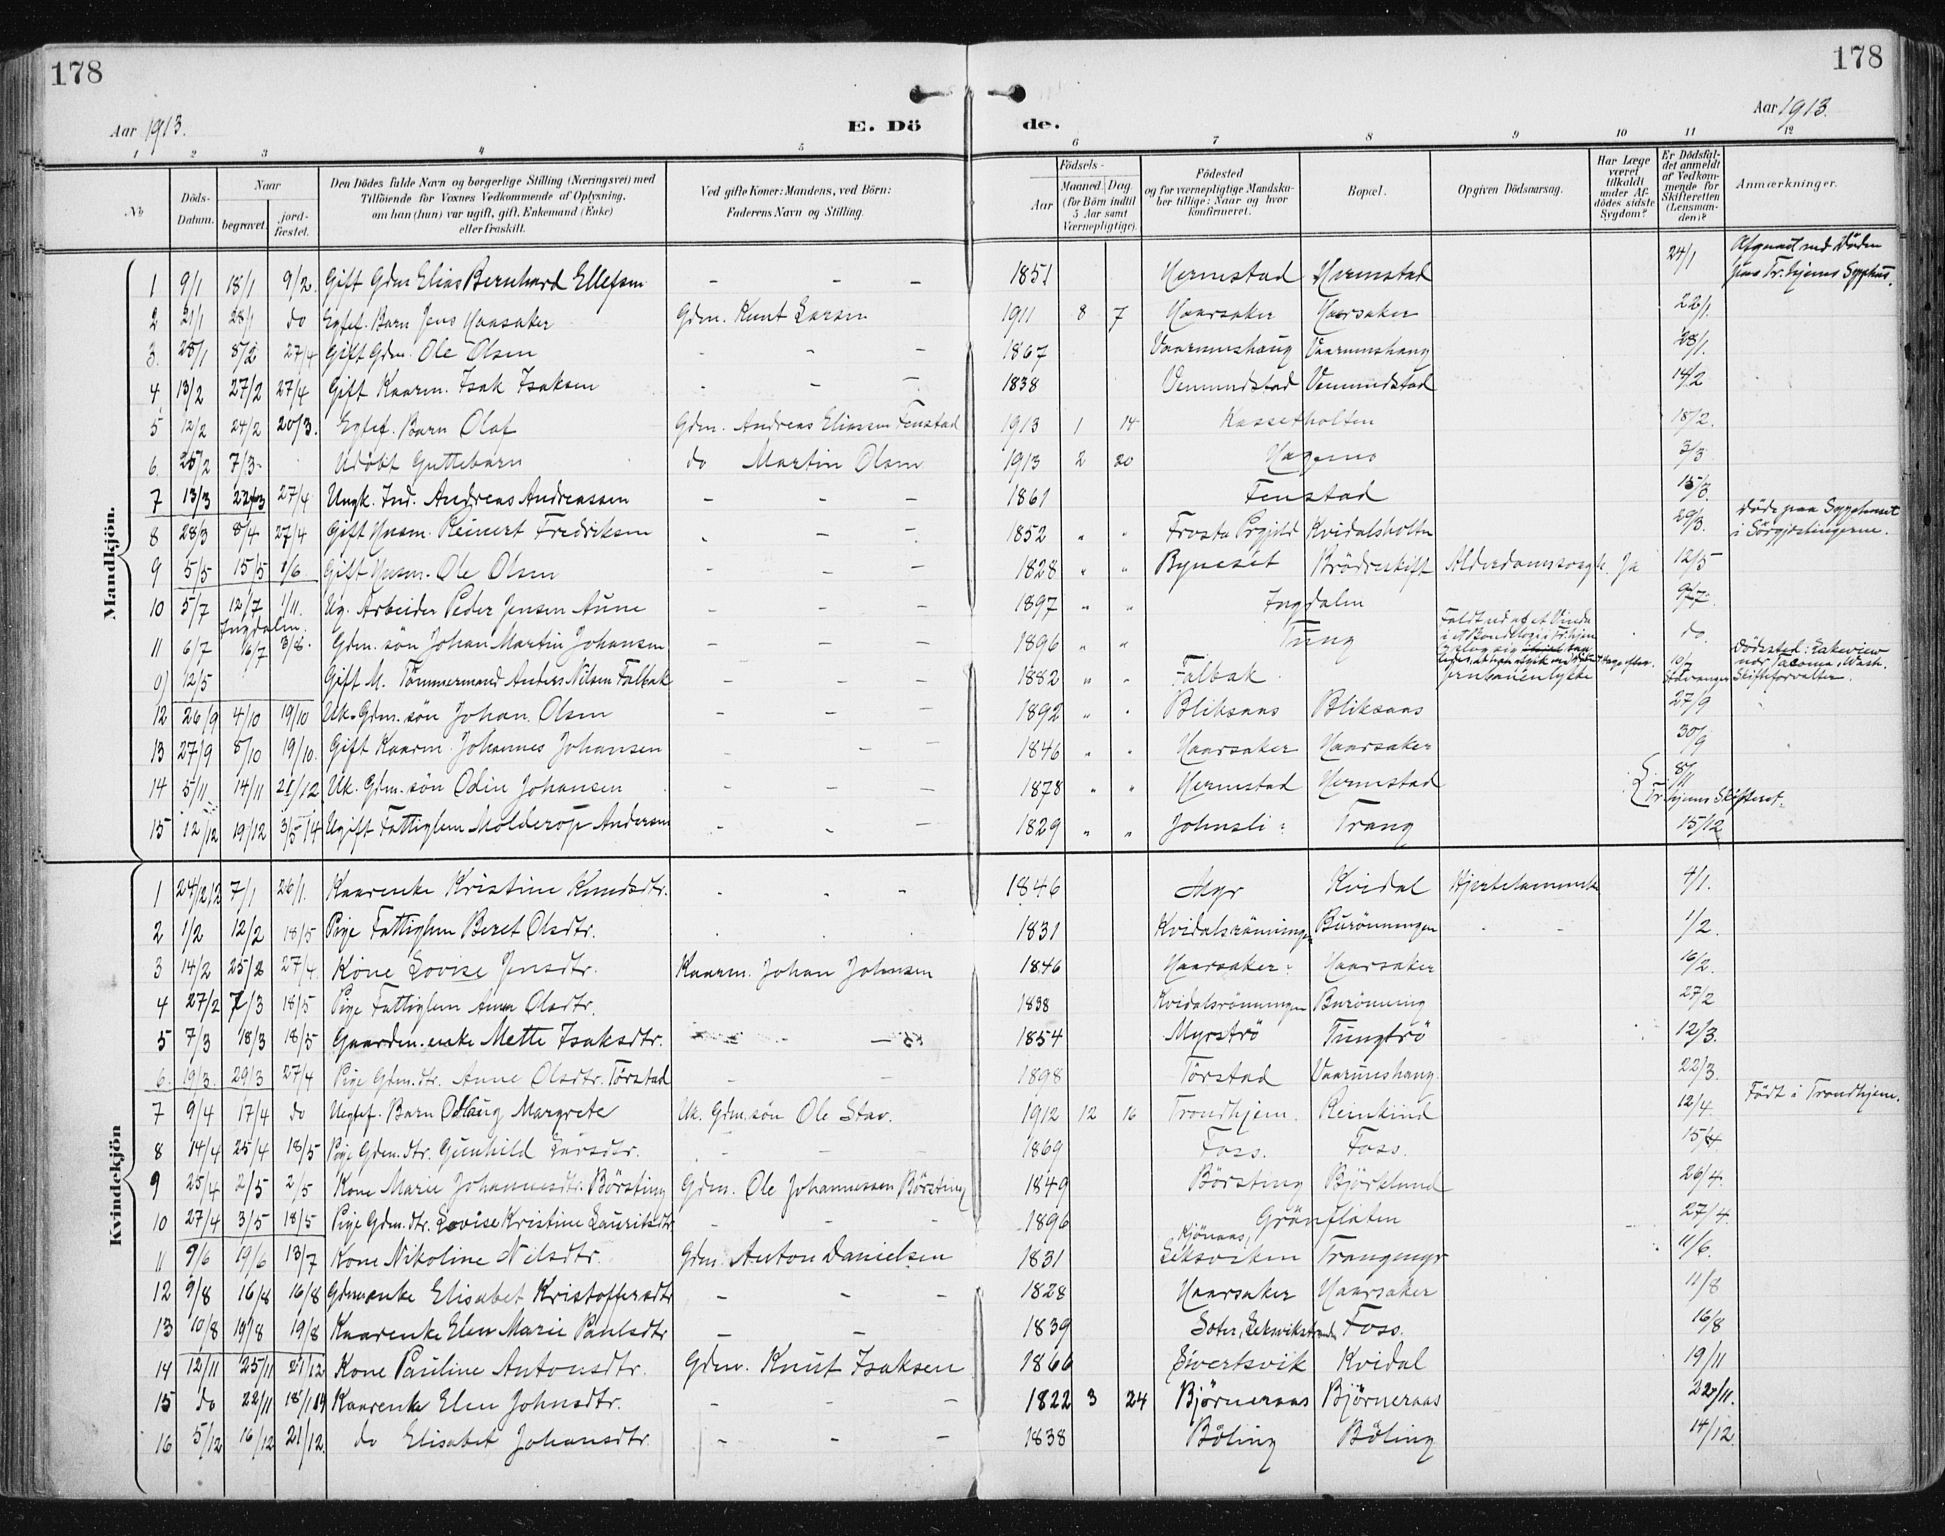 178
178
Aar 1913.
E. Dö de.
Aar 1913.
1 2 3 4 5 6 7 8 9 10 11 12
No
Döds-Datum.
Naar begravet. jord-fæstet.
Den Dödes fulde Navn og borgerlige Stilling (Næringsvei) med Tilföiende for Voxnes Vedkommende af Oplysning, om han (hun) var ugift, gift, Enkemand (Enke) eller fraskilt.
Ved gifte Koner: Mandens, ved Börn: Faderens Navn og Stilling.
Födsels- Aar Maaned. Dag. (for Börn indtil 5 Aar samt Værnepligtige).
Födested og for værnepligtige Mandskaber tillige: Naar og hvor konfirmeret.
Bopæl.
Opgiven Dödsaarsag.
Har Læge været tilkaldt under Afdödes sidste Sygdom?
Er Dödsfaldet anmeldt af Vedkommende for Skifteretten (Lensmanden)?
Anmærkninger.
Mandkjön.
1 9/1 18/1 9/2. Gift Gdm Elias Bernhard Ellefsen – – – 1851 Hermstad Hermstad 24/1
2 21/1 28/1 do Egtef. Barn Jens Haarsaker Gdm. Knut Larsen 1911 8 7 Haarsaker Haarsaker 22/1.
3. 28/1 8/2 27/4 Gift Gdm. Ole Olsen – – – 1867 Vaarumshaug Vaarumshaug 28/1.
4 13/2 27/2 27/4 Gift Kaarm. Isak Isaksen – – – 1838 Vemundstad Vemundstad 14/2
5 12/2 24/2 20/3. Egtef. Barn Olaf Gdm. Andreas Eliassen Fenstad 1913 1 14 Kassetholten 18/2.
6. 25/2 7/3 Udöbt Guttebarn do Martin Olsen 1913 2 20 3/3
7 13/3 22/3 27/4 Ungk. Ind. Andreas Andreassen – – – 1861 Fenstad 15/3.
8 28/3 8/4 27/4 Gift Husm. Reinert Fredriksen – – – 1852 " " Frosta Prgjeld Kvidalsholten 29/3. Döde paa Sygehuset i Sörgjæslingerne.
9 5/5 15/5 1/6 Gift Husm. Ole Olsen – – – 1828 " " Byneset Brödreskift Alderdomssvagh. Ja 12/5
10 5/7 12/7 1/11. Ug. Arbeider Peder Jensen Aune – – – 1897 " " Ingdalen 9/7.
Ingdalen
11 6/7 16/7 3/8. Gdm. sön Johan Martin Johansen – – – 1896 " " Tung do.
0) 12/5 Gift M. Tömmermand Anders Nilsen Falbak – – – 1882 " " Falbak Jernbaneulykke 10/7 Dödssted: Lakeview nær Tacoma, Wash.
12 26/9 4/10 19/10 Uk. Gdm. sön Johan Olsen – – – 1892 " " Bliksaas Bliksaas 27/9
13 27/9 8/10 19/10. Gift Kaarm. Johannes Johansen – – – 1846 " " Haarsaker Haarsaker 30/9
14 5/11 14/11 21/12 Uk. Gdm. sön Odin Johansen – – – 1878 " " Hermstad Hermstad 8/11 Tr.hjems Skifteret.
15 12/12 19/12 3/5 14 Ugift Fattiglem Molderop Andersen – – – 1829 " " Johnsli Trang 15/12
Kvindekjön
1 24/12 12 7/1 26/1. Kaarenke Kristine Knudsdtr. 1846 Myr Kvidal Hjertelammelse 4/1.
2 1/2 12/2 18/5 Pige Fattiglem Beret Olsdtr. 1831 Kvidalsrönningen Burönningen 1/2.
3 14/2 25/2 27/4. Kone Lovise Jensdtr. Kaarm. Johan Johnsen 1846 Haarsaker Haarsaker 16/2.
4 27/2 7/3 18/5 Pige Fattiglem Anna Olsdtr. 1838 Kvidalsrönningen Burönning 27/2
5 7/3 18/3 18/5 Gaardm. enke Mette Isaksdtr. 1854 Myrströ Tungtrö 12/3.
6. 19/3. 29/3 27/4 Pige Gdm. dtr. Anne Olsdtr. Törstad – – 1898 Törstad Vaarumshaug. 22/3.
7 9/4 17/4 do Uegtef. Barn Odlaug Margrete Uk. Gdm. sön Ole Stav. 1912 12 16 Trondhjem. Reinkind 12/4. Født i Trondhjem.
8 14/4 25/4 18/5 Pige Gdm. dtr. Gunhild Larsdtr. – – – 1869 Foss. Foss. 15/4.
9 25/4 2/5 2/5 Kone Marie Johannesdtr. Börsting Gdm. Ole Johannessen Börsting 1849 Börsting Björklund 26/4.
10 27/4 3/5 18/5 Pige Gdm. dtr. Lovise Kristine Lauritsdtr – – – 1896 Grönflaten 27/4.
11 9/6 19/6 13/7 Kone Nikoline Nilsdtr. Gdm. Anton Danielsen 1831 Leksviken Trangmyr 11/6.
12 9/8 16/8 16/8 Gdm enke Elisabet Kristoffersdtr – – – 1828 Haarsaker Haarsaker 11/8
13 10/8 19/8 19/8 Kaarenke Elen Marie Paulsdtr – – 1839 Leksvikstranden Foss. 16/8
14 12/11 25/11 21/12 Kone Pauline Antonsdtr. Gdm. Knut Isaksen 1866 Sivertsvik Kvidal 19/11
15 do 22/11 18/1 14 Kaarenke Elen Johnsdtr. – – – 1822 3 24 Bjørneraas Bjørneraas 22/11.
16 5/12 16/12 21/12. do Elisabet Johansdtr. – – – 1838 Böling Böling 14/12.